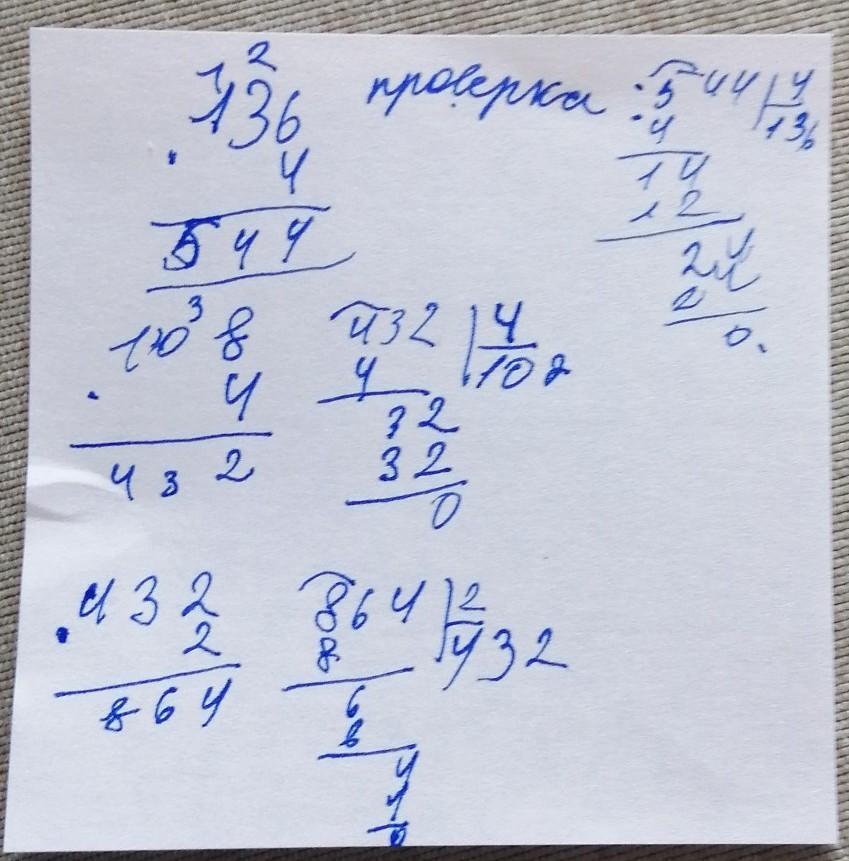 1 2
136
· 4
544
проверка
544 | 4
4 136
14
12
24
24
0.
3
108
· 4
432
432 | 4
4 108
32
32
0
432
· 2
864
864 | 2
8 432
6
6
4
4
0